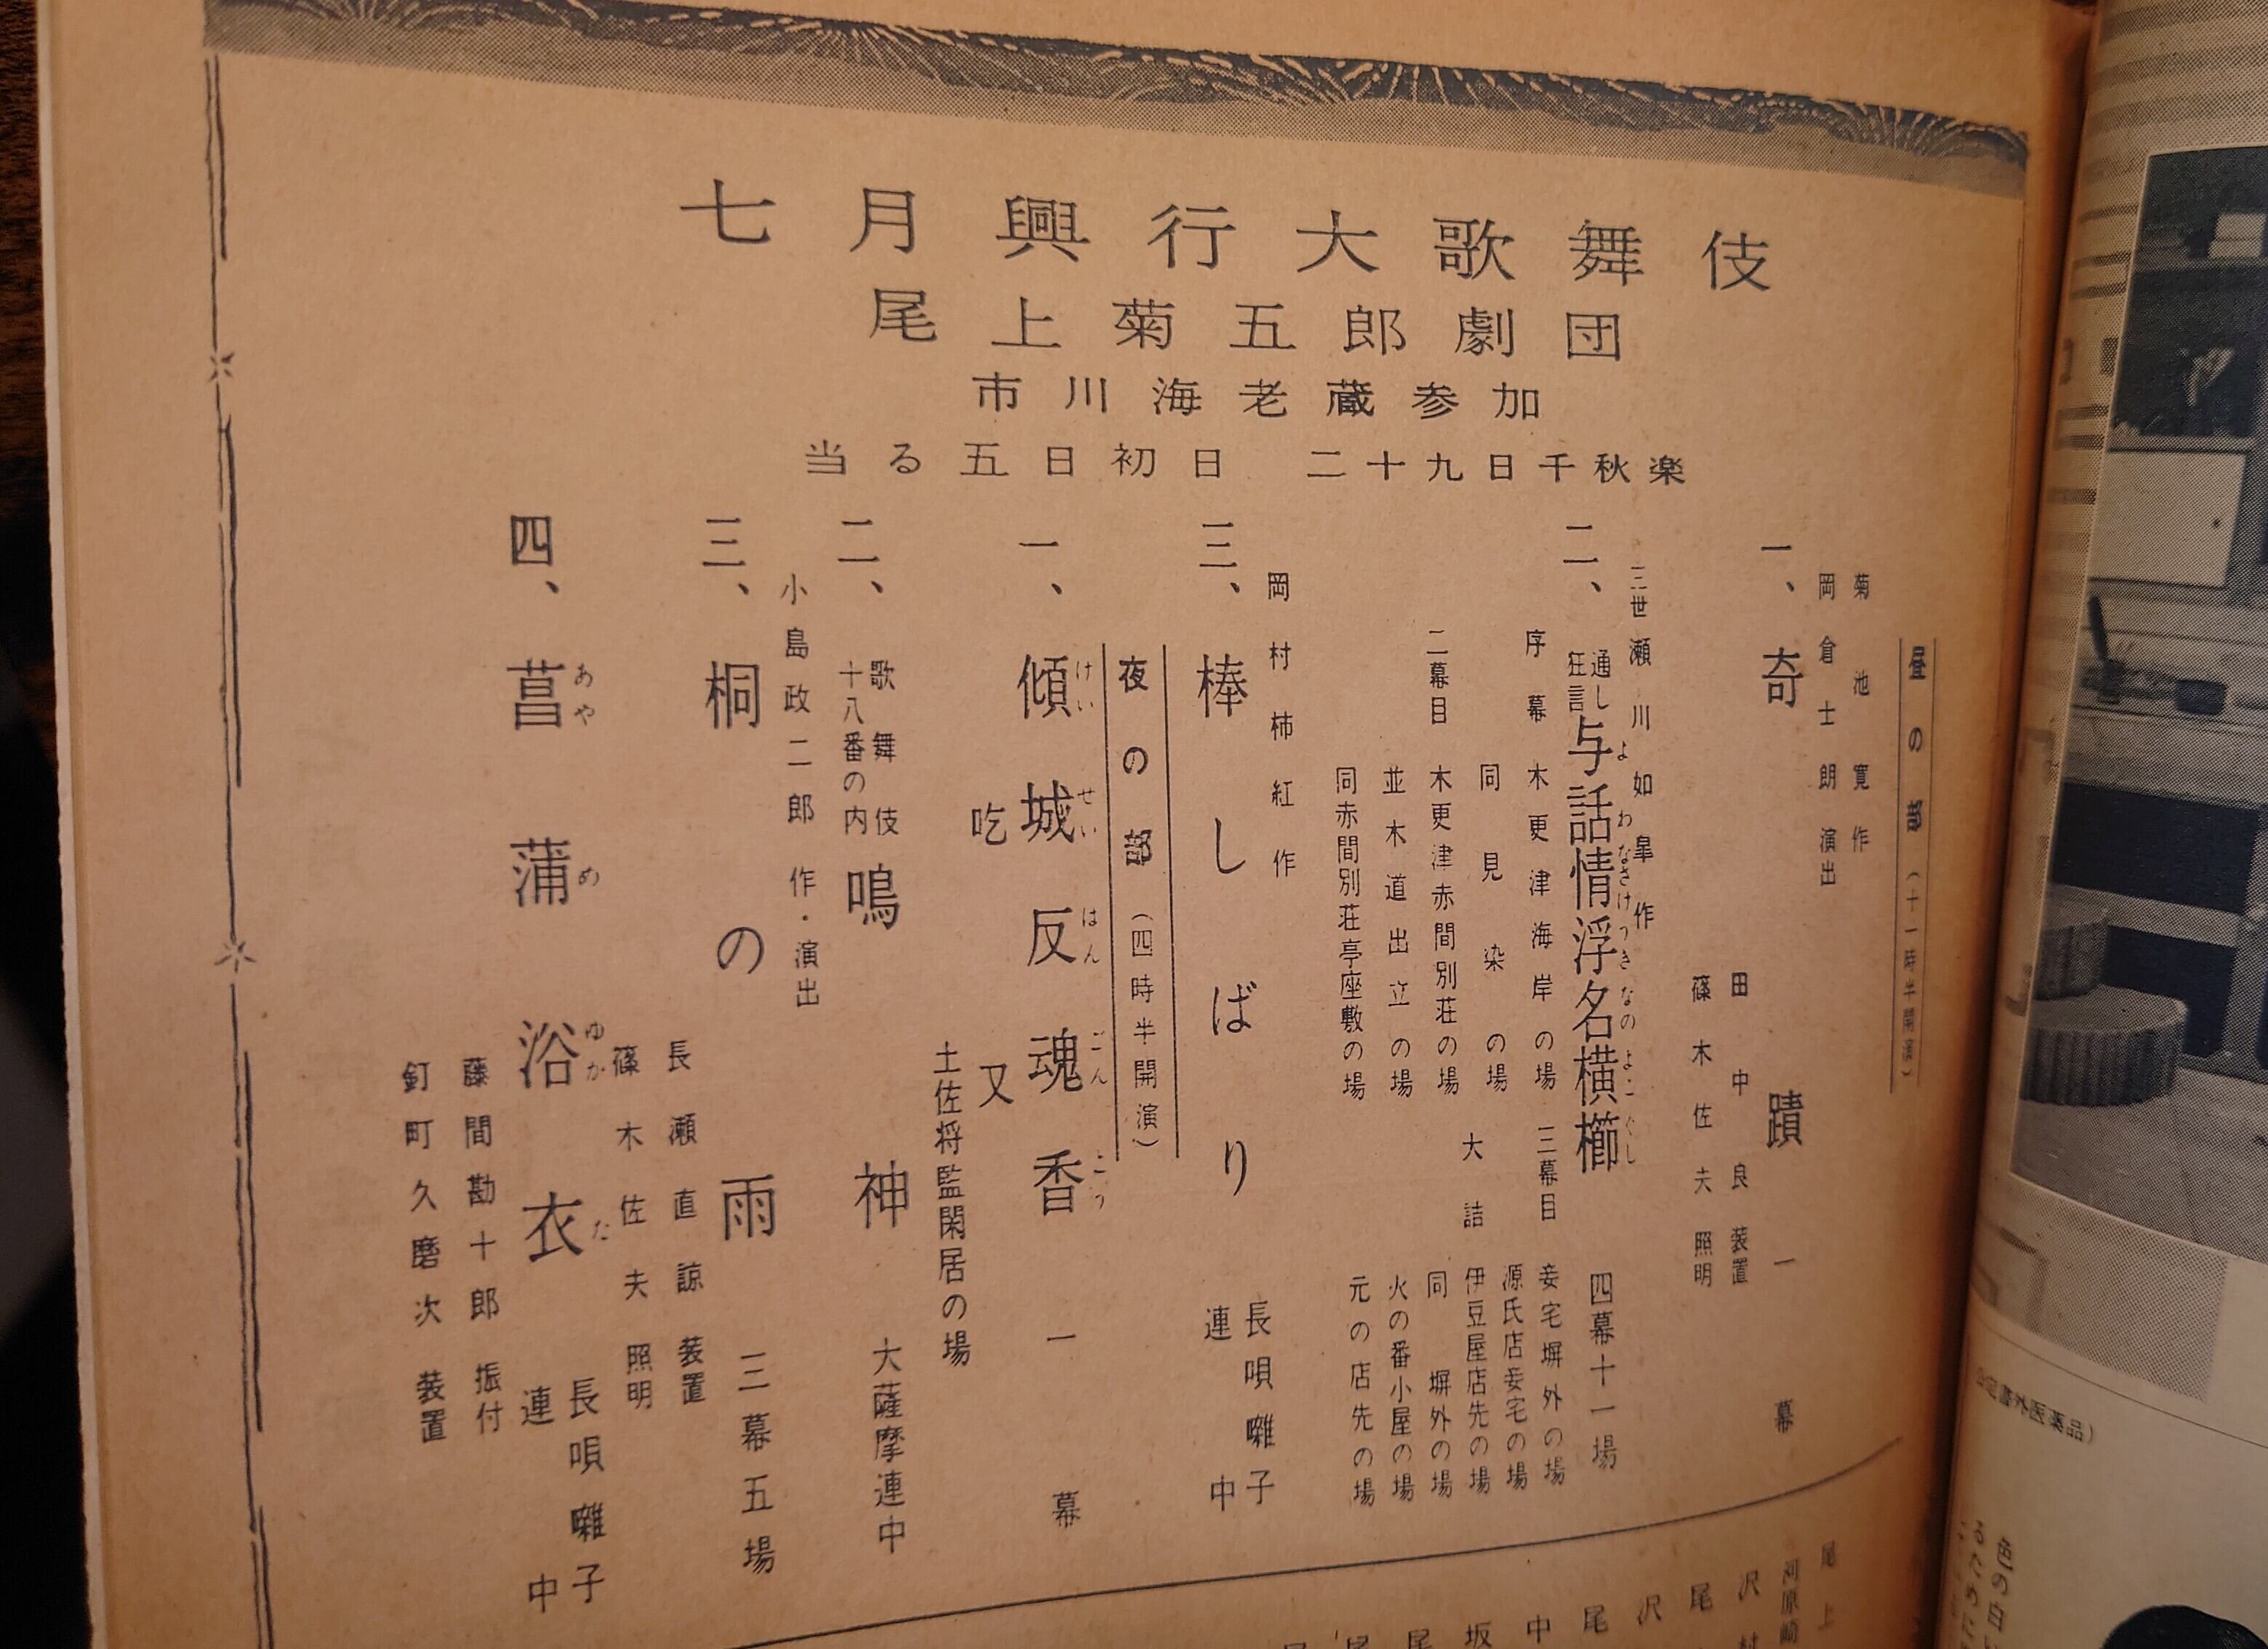 七月興行大歌舞伎
尾上菊五郎劇団
市川海老蔵参加
当る五日初日 二十九日千秋楽
昼の部(十一時半開演)
菊池寛作
岡倉士朗演出
一、奇蹟 一幕
田中良装置
篠木佐夫照明
三世瀬川如皐作
二、通し狂言与話情浮名横櫛 四幕十一場
よわなさけうきなのよこぐし
序幕 木更津海岸の場
同見染の場
二幕目 木更津赤間別荘の場
並木道出立の場
同赤間別荘亭座敷の場
三幕目 妾宅塀外の場
源氏店妾宅の場
大詰 伊豆屋店先の場
同塀外の場
火の番小屋の場
元の店先の場
岡村柿紅作
三、棒しばり 長唄囃子連中
夜の部(四時半開演)
一、傾城反魂香 一幕
けいせいはんごんこう
吃又
土佐将監閑居の場
二、歌舞伎十八番の内鳴神 大薩摩連中
小島政二郎作・演出
三、桐の雨 三幕五場
長瀬直諒装置
篠木佐夫照明
四、菖蒲浴衣 長唄囃子連中
あやめゆかた
藤間勘十郎振付
釘町久磨次装置
尾上
河原崎
沢村
尾
沢
尾
中
坂
尾
尾
公定書外医薬品)
色の白い
るために